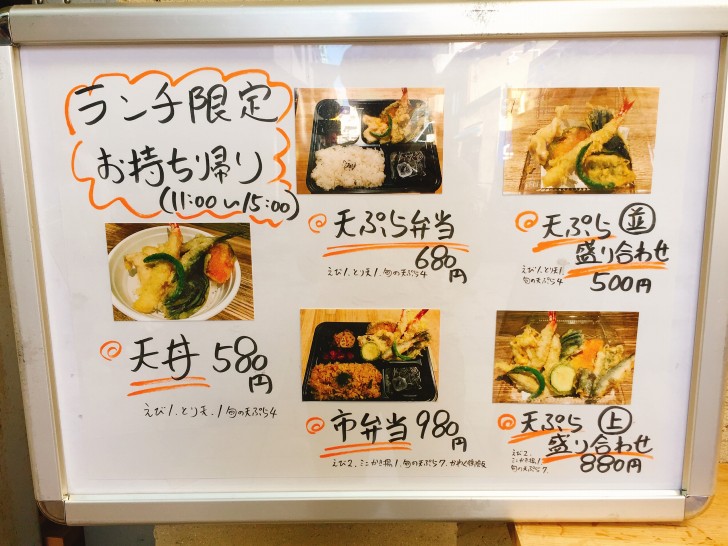 ランチ限定
お持ち帰り
(11:00〜15:00)
天丼 580円
えび1.とり天.1 旬の天ぷら4
天ぷら弁当
680円
えび1.とり天1.旬の天ぷら4
市弁当 980円
えび2.ミニかき揚.1 旬の天ぷら7.
天ぷら 並
盛り合わせ
えび1.とり天1.
旬の天ぷら4
500円
天ぷら 上
盛り合わせ
えび2.
ミニかき揚.1
旬の天ぷら7.
880円